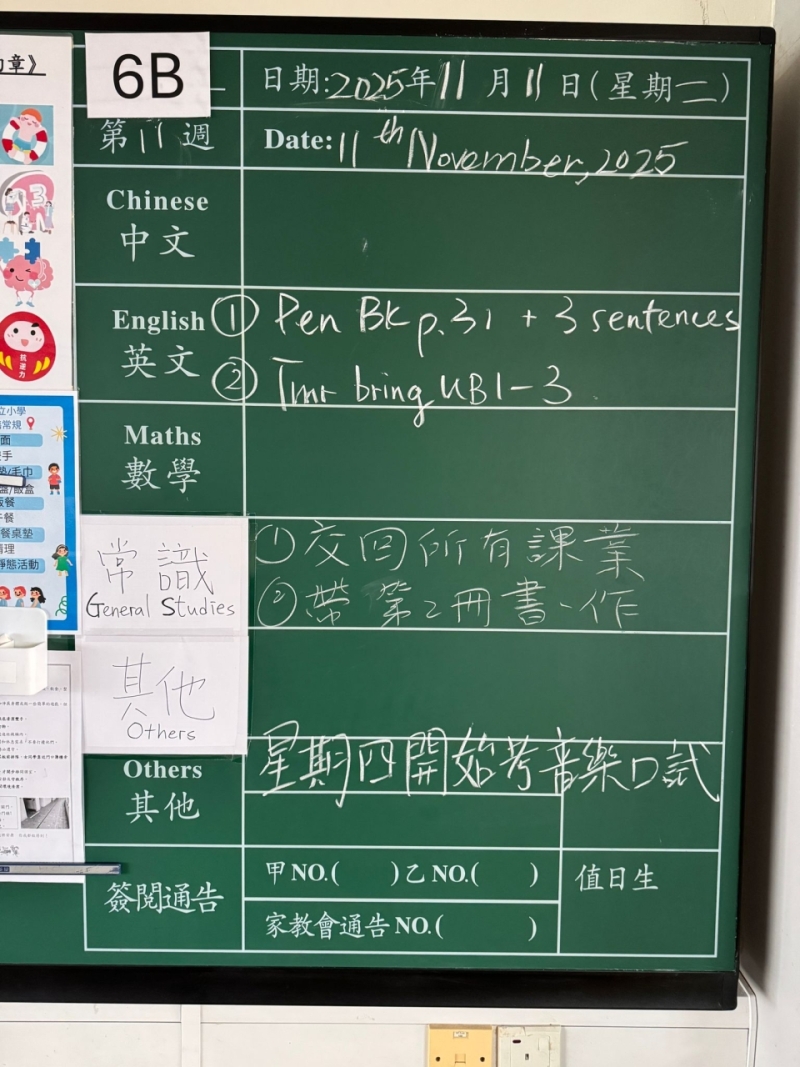 約章》
6B
日期:2025年11月11日(星期二)
第11週
Date: 11th November, 2025
Chinese
中文
English
英文
① Pen Bk p.31 + 3 sentences
② Tmr bring UB1-3
Maths
數學
常識
General Studies
① 交回所有課業
② 帶第2冊書、作
其他
Others
Others
其他
星期四開始考音樂口試
簽閱通告
甲 NO.( ) 乙 NO.( )
家教會通告 NO.( )
值日生
抗逆力
立小學
常規
面
手
墊/毛巾
盒/飯盒
飯餐
午餐
餐桌墊
清理
靜態活動